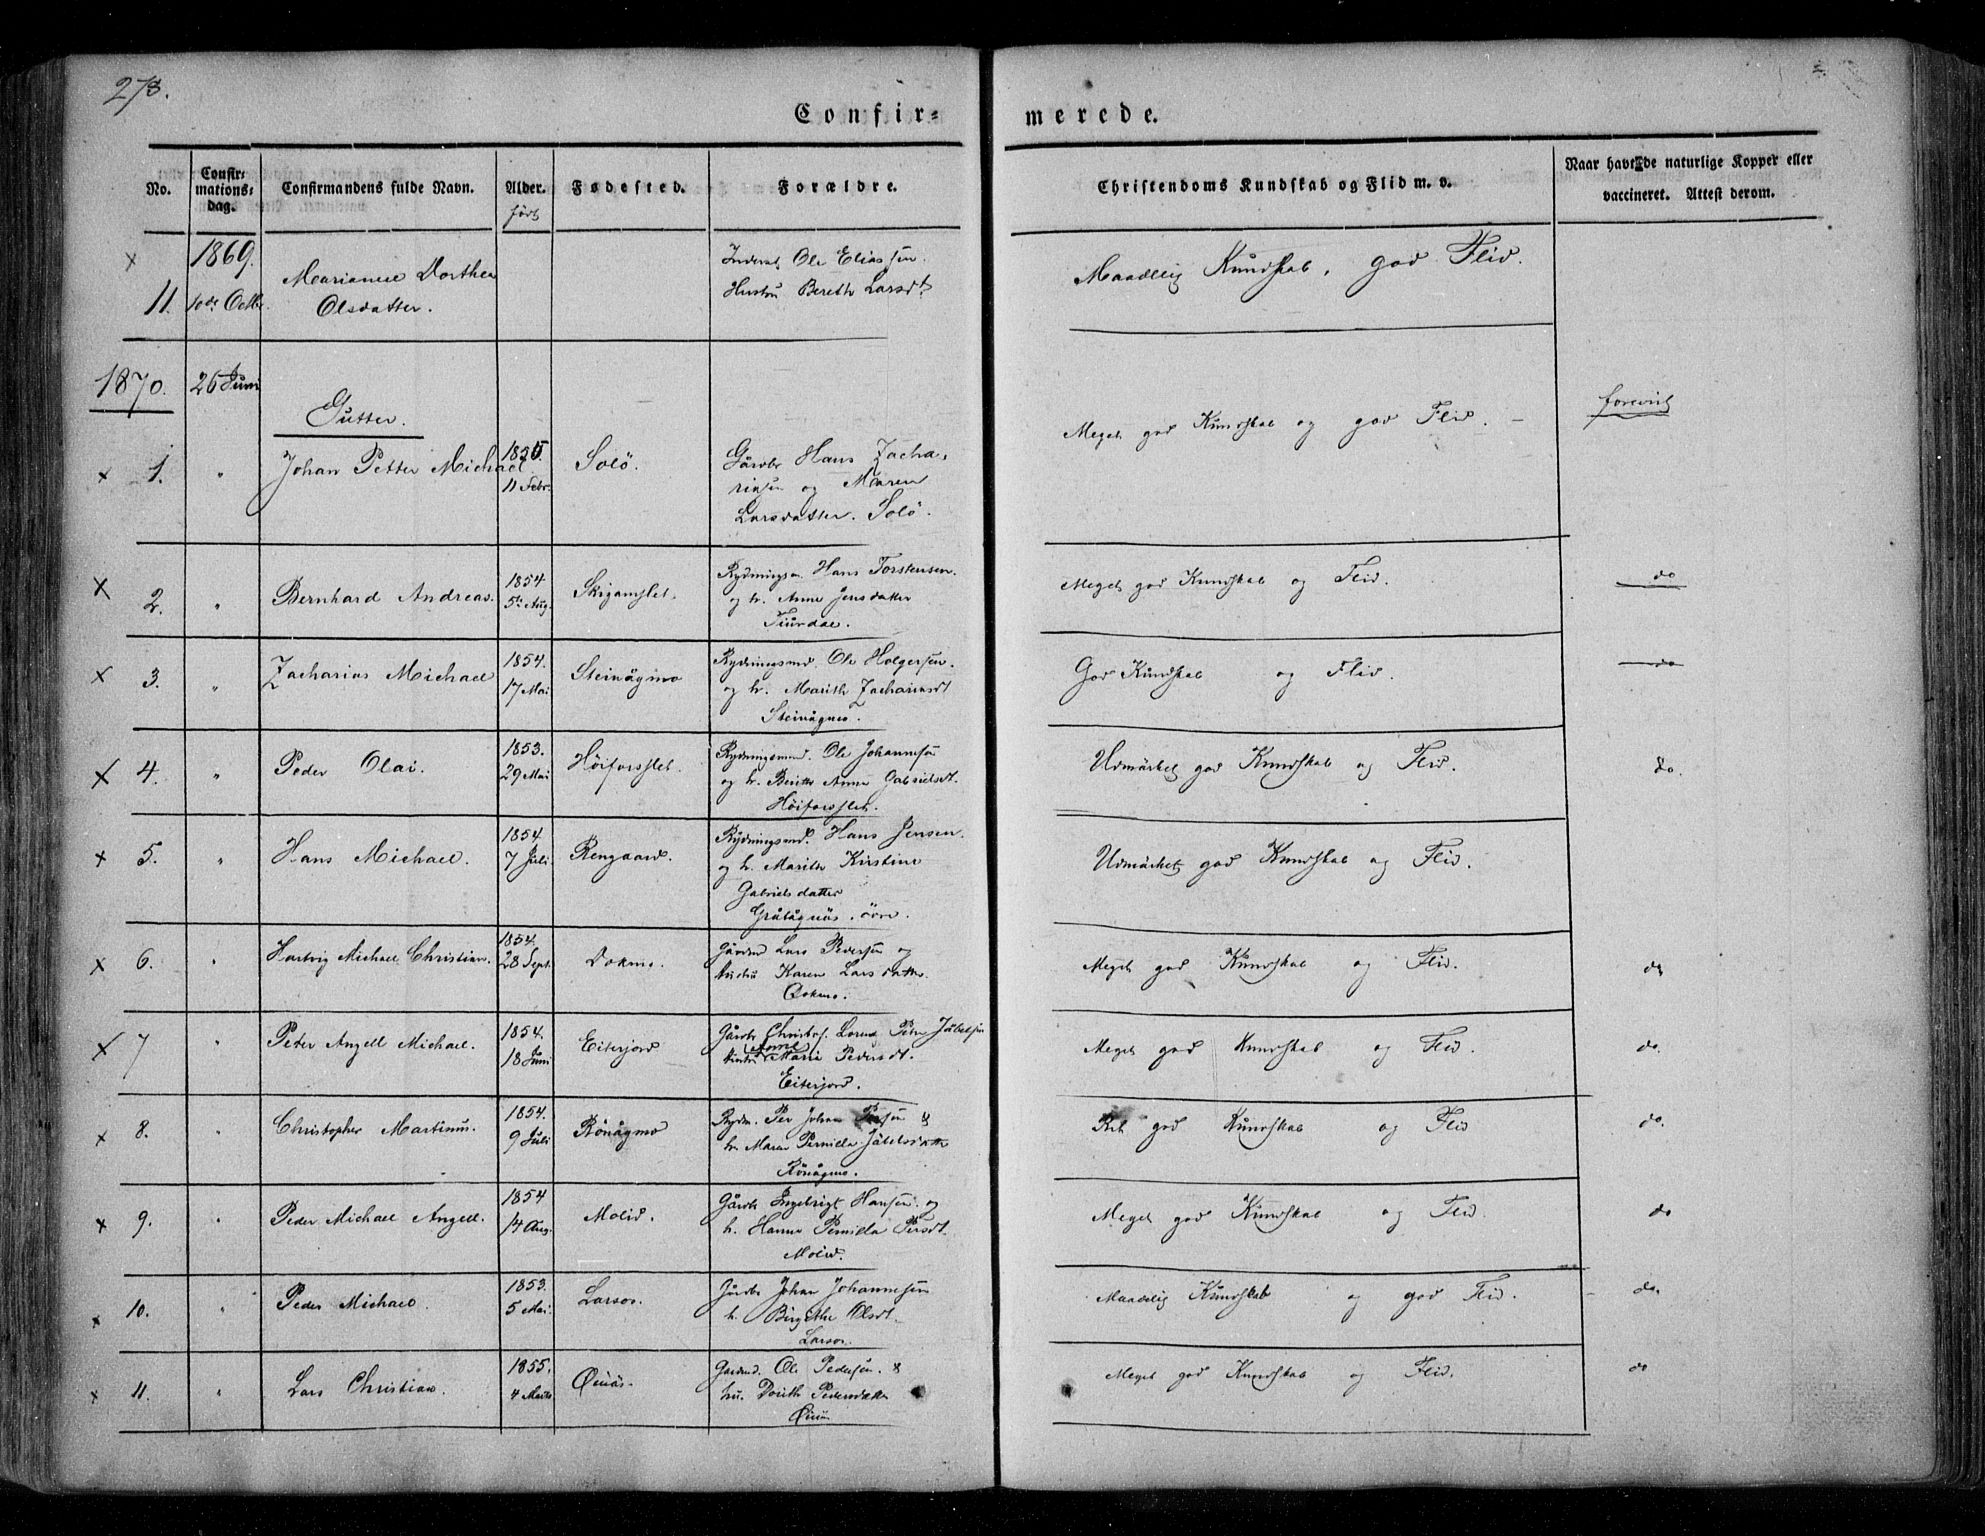 273.
Confir= merede.
No. Confir-mations-dag. Confirmandens fulde Navn. Alder. Fødested. Forældre. Christendoms Kundskab og Flid m. v. Naar havt de naturlige Kopper eller vaccineret. Attest derom.
født
1869.
11. 10de Octbr. Mariane Dorthea Olsdatter. Inderst Ole Eliassen. Hustru Bereth Larsdt. Maadelig Kundskab, god Flid.
1870. 26 Juni
Gutter.
1. " Johan Petter Michael 1855. 11 Febr. Solö. Gårdbr Hans Zachariasen og Maren Larsdatter. Solö. Meget god Kundskab og god Flid. – forevist
2. " Bernhard Andreas. 1854 5te Aug. Skjgamslet. Rydningsm. Hans Torstensen. og h. Anne Jensdatter Meget god Kundskab og Flid. do
3. " Zacharias Michael 1854. 17 Mai Steinågmo Rydningsmd. Ole Holgersen. og h. Marith Zachariasdt Steinågmo. God Kundskab og Flid. do
4. " Peder Olai. 1853. 29 Mai Höiforsslet. Rydningsmand. Ole Johannesen og h. Berith Anne Gabrielsdt. Höiforsslet. Udmärket god Kundskab og Flid. do.
5. " Hans Michael. 1854. 7 Juli Rengaard. Rydningsmd. Hans Jensen. og h. Marith Kirstine Gabrielsdatter Gråtågnäs, övre. Udmärket god Kundskab og Flid.
6. " Hartvig Michael Christian. 1854. 28 Sept. Dokmo. Gårdmd Lars Pedersen og Hustru Karen Larsdatter. Dokmo. Meget god Kundskab og Flid. do
7 " Peter Angell Michael. 1854. 18 Juni Eiterjord Gårdbr Christof. Lorens Petter Jübelsen Hustru Anne Maria Pedersdt. Eiterjord. Meget god Kundskab og Flid. do.
8. " Christopher Martinus. 1854. 9 Juli Rönågmo Rydm. Per Johan Persen & h. Maren Pernilla Jübelsdatter Rönågmo. Ret god Kundskab og Flid do.
9. " Peder Michael Angell. 1854 14 Aug. Molid. Gårdbr Ingebrigt Hansen. og h. Hanna Pernilla Persdt. Molid. Meget god Kundskab og Flid. do
10. " Peder Michael. 1853. 5 Mai. Larsos. Gårdbr Johan Johannesen h. Birgithe Olsdt. Larsos. Maadelig Kundskab og god Flid. – do.
11. " Lars Christian. 1855. 4 Marts Öinäs. Gardmd. Ole Pedersen. & hu. Dorith Pedersdatter Öinäs Meget god Kundskab og Flid. do